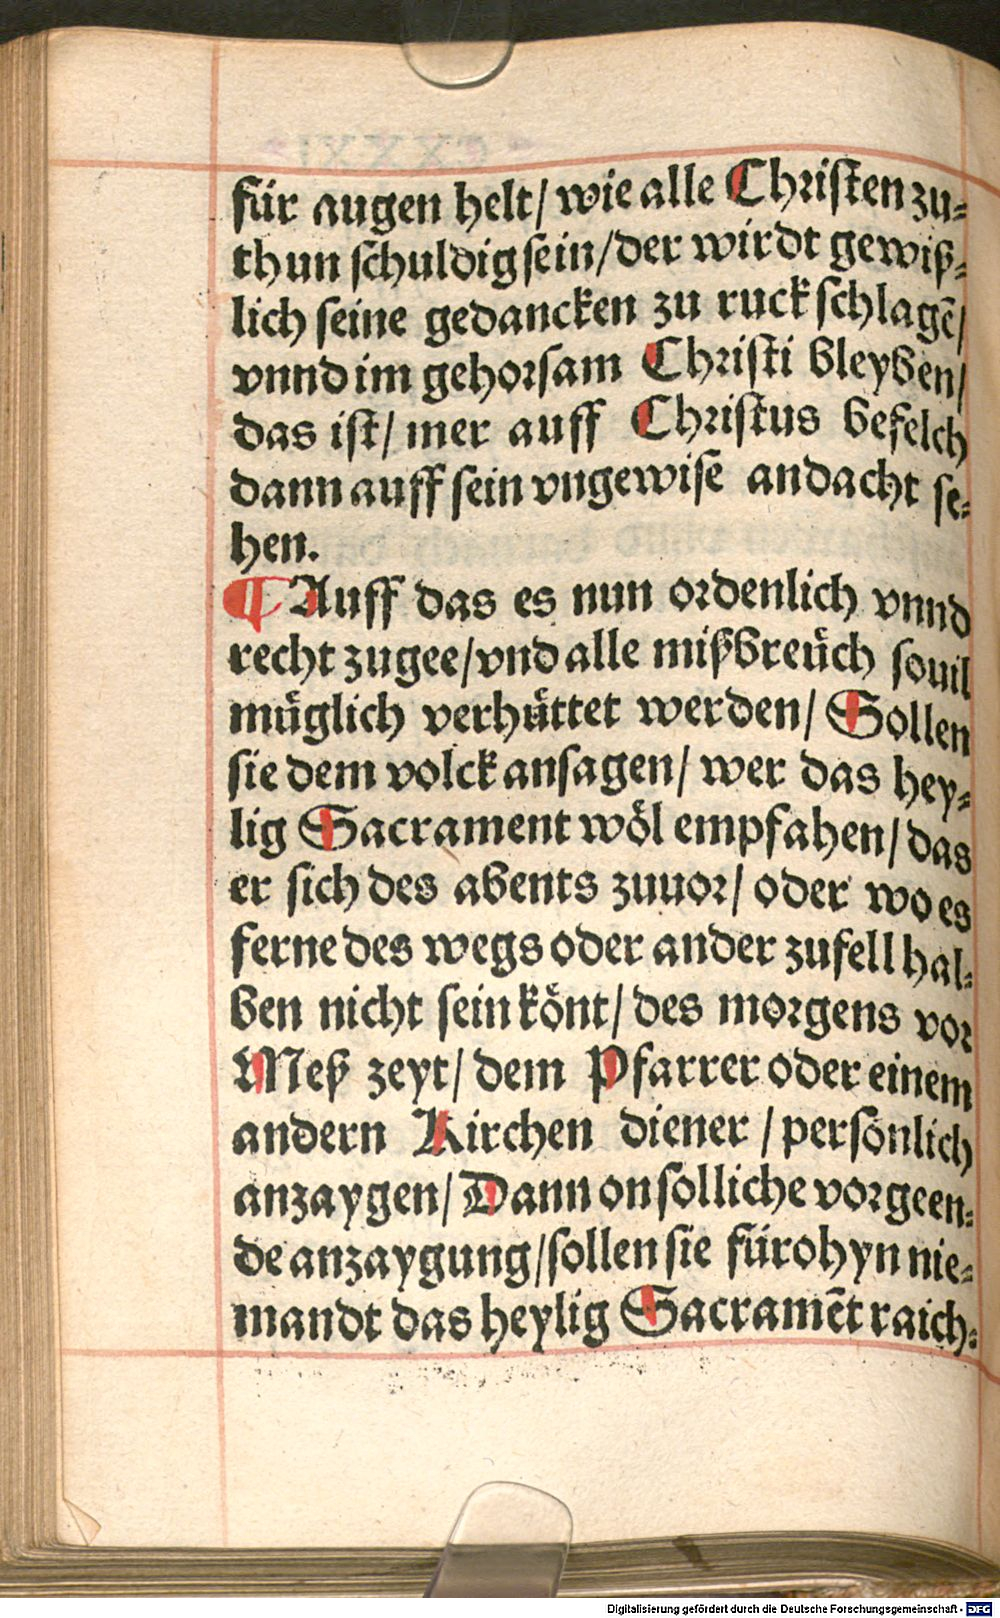 für augen helt/ wie alle Christen zu⸗
thun schuldig sein/ der wirdt gewiß⸗
lich seine gedancken zu ruck schlagẽ/
vnnd im gehorsam Christi bleyben/
das ist/ mer auff Christus befelch
dann auff sein vngewise andacht se⸗
hen.
¶ Auff das es nun ordenlich vnnd
recht zugee/ vnd alle mißbreüch souil
müglich verhüttet werden/ Sollen
sie dem volck ansagen/ wer das hey⸗
lig Sacrament wöl empfahen/ das
er sich des abents zuuor/ oder wo es
ferne des wegs oder ander zufell hal⸗
ben nicht sein könt/ des morgens vor
Meß zeyt/ dem Pfarrer oder einem
andern Kirchen diener / persönlich
anzaygen/ Dann on solliche vorgeen⸗
de anzaygung/ sollen sie fürohyn nie⸗
mandt das heylig Sacramẽt raich⸗
Digitalisierung gefördert durch die Deutsche Forschungsgemeinschaft - DFG